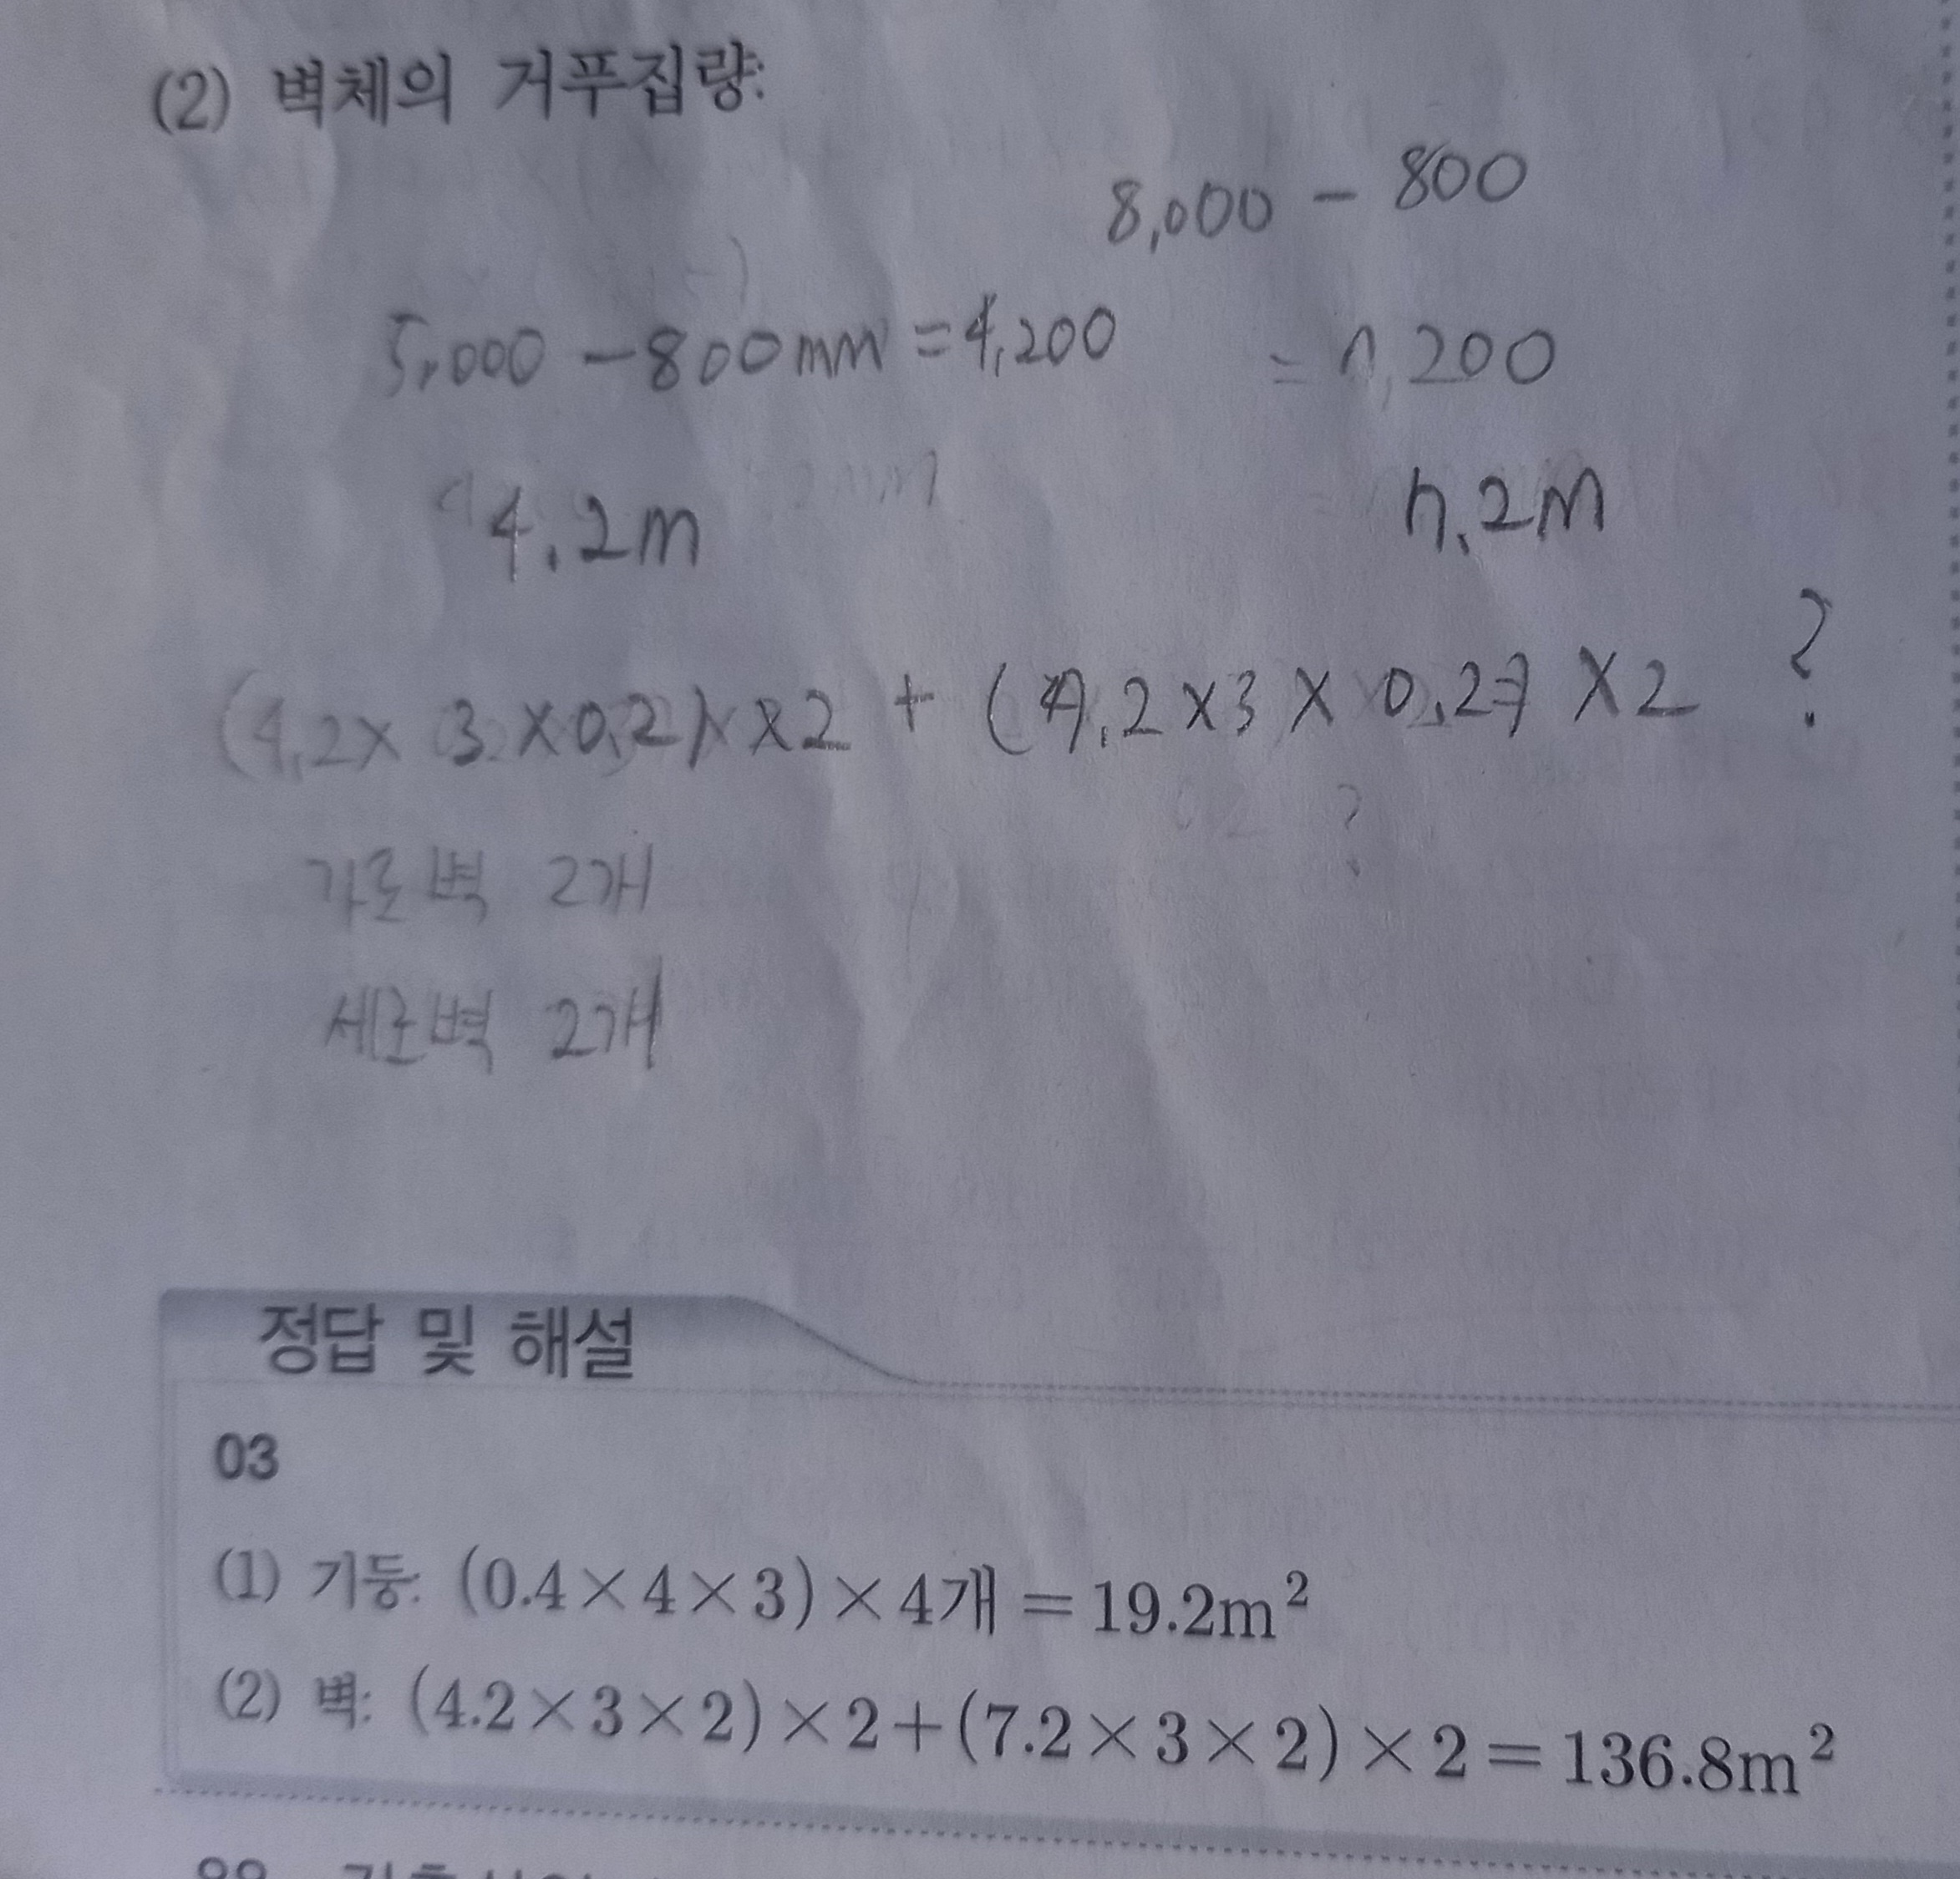 (2) 벽체의 거푸집량:
8,000 - 800
5,000 - 800mm = 4,200
= 7,200
4.2m
7.2m
(4.2 × 3 × 0.2) × 2 + (7.2 × 3 × 0.2) × 2 ?
?
가로벽 2개
세로벽 2개
정답 및 해설
03
(1) 기둥: (0.4×4×3)×4개 = 19.2m²
(2) 벽: (4.2×3×2)×2+(7.2×3×2)×2 = 136.8m²